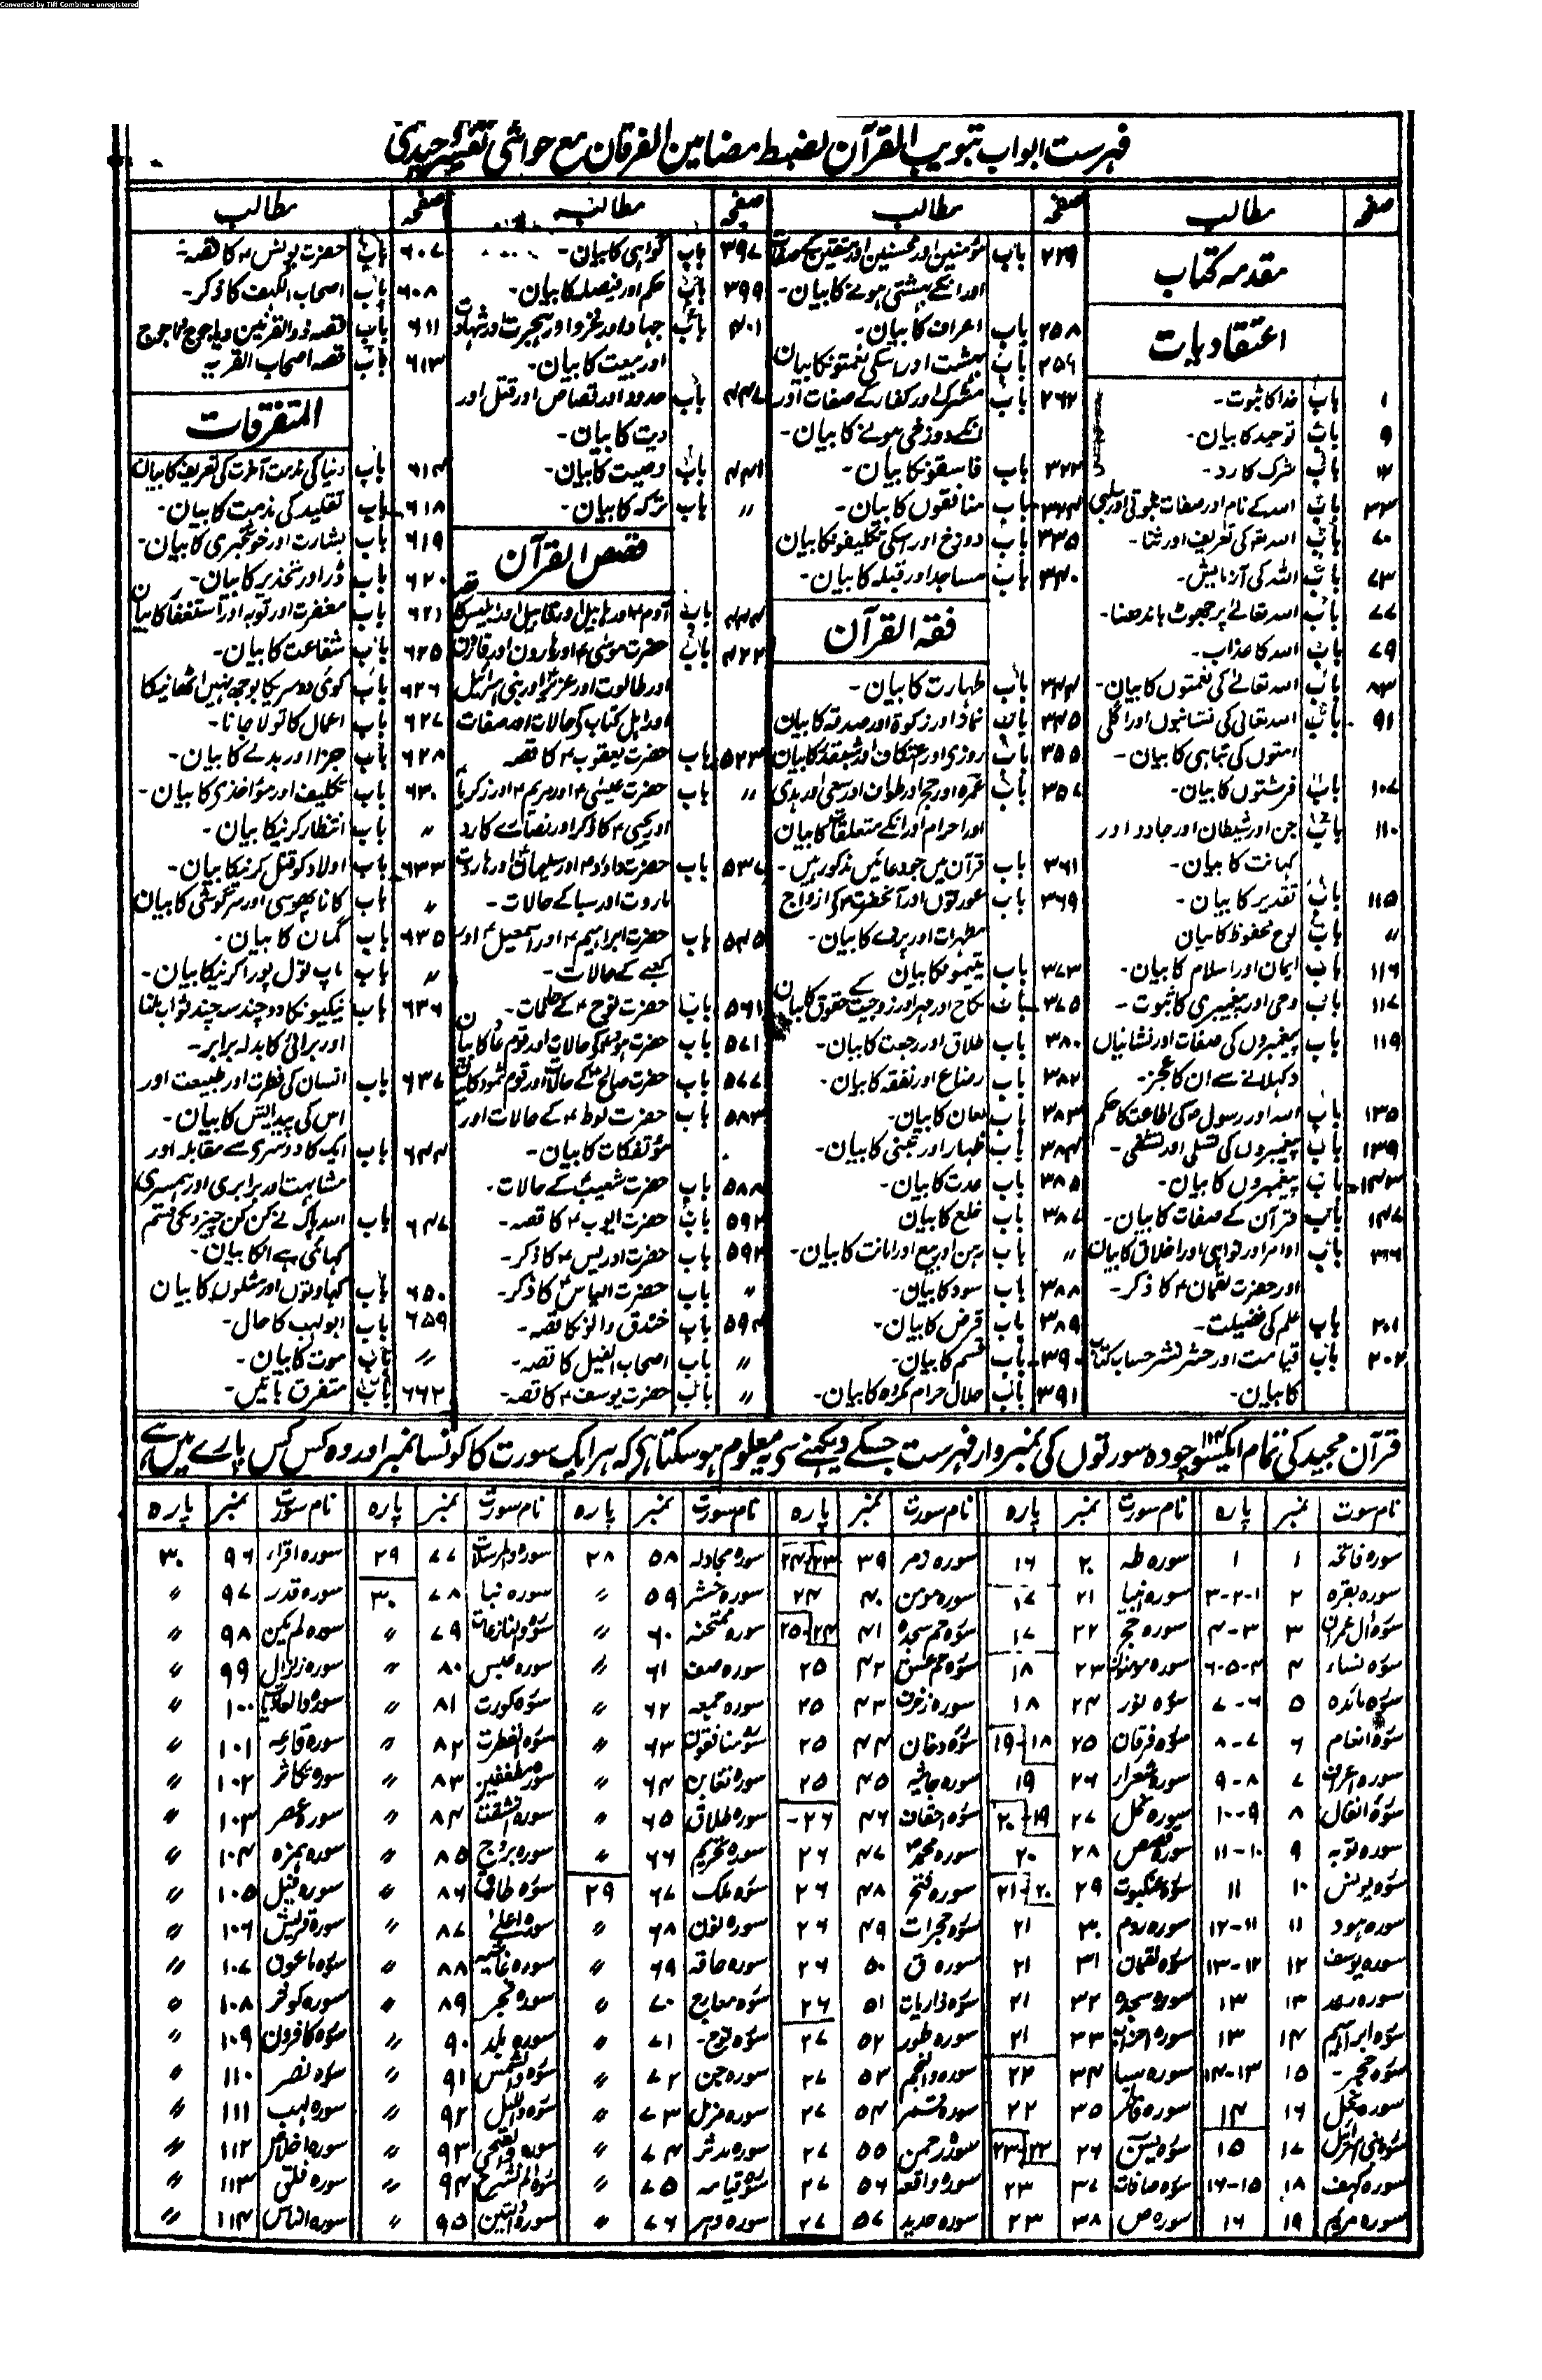 Converted by Tiff Combine - unregistered
فہرست ابواب تبویب القرآن لضبط مضامین الفرقان مع حواشی تفسیر وحیدی
صفحہ مطالب
مقدمہ کتاب
اعتقادیات
۱ باب خدا کا ثبوت۔
۹ باب توحید کا بیان۔
باب شرک کا رد۔
۳۳ باب اللہ کے نام اور صفات ثبوتی اور سلبی
۷۰ باب اللہ کی تعریف اور ثنا۔
۷۳ باب اللہ کی آزمایش۔
۷۷ باب اللہ تعالےٰ پر جھوٹ باندھنا۔
۷۹ باب اللہ کا عذاب۔
۸۳ باب اللہ تعالےٰ کی نعمتوں کا بیان۔
۹۱ باب اللہ تعالی کی نشانیوں اور اگلی
امتوں کی تباہی کا بیان۔
۱۰۷ باب فرشتوں کا بیان۔
۱۱۰ باب جن اور شیطان اور جادو اور
کہانت کا بیان۔
۱۱۵ باب تقدیر کا بیان۔
〃 باب لوح محفوظ کا بیان
۱۱۶ باب ایمان اور اسلام کا بیان۔
۱۱۷ باب وحی اور پیغمبری کا ثبوت۔
۱۱۹ باب پیغمبروں کی صفات اور نشانیاں
دکہلانے سے ان کا عجز۔
۱۳۵ باب اللہ اور رسول کی اطاعت کا حکم
۱۳۹ باب پیغمبروں کی تسلی اور تشفی۔
۱۴۳ باب پیغمبروں کا بیان۔
۱۴۷ باب قرآن کے صفات کا بیان۔
باب اوامر اور نواہی اور اخلاق کا بیان
اور حضرت لقمان ؑ کا ذکر۔
۲۰۱ باب علم کی فضیلت۔
۲۰۲ باب قیامت اور حشر نشر حساب کتاب
کا بیان۔
صفحہ مطالب
۲۴۹ باب مؤمنین اور محسنین اور متقین کے صفات
اور انکے بہشتی ہونے کا بیان۔
۲۵۸ باب اعراف کا بیان۔
۲۵۹ باب بہشت اور اسکی نعمتونکا بیان
۲۶۲ باب مشرک اور کفار کے صفات اور
انکے دوزخی ہونے کا بیان۔
۳۲۲ باب فاسقونکا بیان۔
۳۲۴ باب منافقوں کا بیان۔
۳۳۵ باب دوزخ اور اسکی تکلیفونکا بیان
۳۴۰ باب مساجد اور قبلہ کا بیان۔
فقہ القرآن
۳۴۴ باب طہارت کا بیان۔
۳۴۵ باب نماز اور زکوۃ اور صدقہ کا بیان
۳۵۵ باب روزی اور اعتکاف اور شبقدر کا بیان
۳۵۷ باب عمرہ اور حج اور طواف اور سعی اور ہدی
اور احرام اور انکے متعلقات کا بیان
۳۶۱ باب قرآن میں جو دعائیں مذکور ہیں۔
۳۶۹ باب عورتوں اور آنحضرت کی ازواج
مطہرات اور پردے کا بیان۔
۳۷۳ باب یتیمونکا بیان
۳۷۵ باب نکاح اور مہر اور زوجیت کے حقوق کا بیان
۳۸۰ باب طلاق اور رجعت کا بیان۔
۳۸۲ باب رضاع اور نفقہ کا بیان۔
۳۸۳ باب لعان کا بیان۔
۳۸۴ باب ظہار اور تبنی کا بیان۔
۳۸۵ باب عدت کا بیان۔
۳۸۷ باب خلع کا بیان
〃 باب رہن اور بیع اور امانت کا بیان۔
۳۸۸ باب سود کا بیان۔
۳۸۹ باب قرض کا بیان۔
۳۹۰ باب قسم کا بیان۔
۳۹۱ باب حلال حرام مکروہ کا بیان۔
صفحہ مطالب
۳۹۷ باب گواہی کا بیان۔
۳۹۹ باب حکم اور فیصلہ کا بیان۔
۴۰۱ باب جہاد اور غزوا اور ہجرت اور شہادت
اور بیعت کا بیان۔
۴۴۷ باب حدود اور قصاص اور قتل اور
دیت کا بیان۔
۴۴۱ باب وصیت کا بیان۔
〃 باب ترکہ کا بیان۔
قصص القرآن
۴۴۴ باب آدم ؑ اور ہابیل اور قابیل اور ابلیس کا قصہ
۴۲۲ باب حضرت موسٰی ؑ اور ہارون اور قارون
اور طالوت اور عزیر اور بنی اسرائیل
اور اہل کتاب کی حالات اور صفات
۵۲۳ باب حضرت یعقوب ؑ کا قصہ
〃 باب حضرت عیسٰی ؑ اور مریم ؑ اور زکریا
اور یحیی ؑ کا ذکر اور نصاریٰ کا رد
۵۳۷ باب حضرت داؤد ؑ اور سلیمان اور ہاروت
ماروت اور سبا کے حالات۔
۵۴۵ باب حضرت ابراہیم ؑ اور اسمعیل ؑ اور
کعبے کے حالات۔
۵۶۱ باب حضرت نوح ؑ کے حالات۔
۵۷۱ باب حضرت ہود کی حالات اور قوم عاد کا بیان
۵۷۷ باب حضرت صالح کے حالات اور قوم ثمود کا بیان
۵۸۳ باب حضرت لوط ؑ کے حالات اور
مؤتفکات کا بیان۔
۵۸۸ باب حضرت شعیب کے حالات۔
۵۹۲ باب حضرت ایوب ؑ کا قصہ۔
۵۹۳ باب حضرت ادریس ؑ کا ذکر۔
〃 باب حضرت الیاس کا ذکر۔
۵۹۴ باب خندق والونکا قصہ۔
〃 باب اصحاب الفیل کا قصہ۔
〃 باب حضرت یوسف ؑ کا قصہ۔
صفحہ مطالب
۶۰۷ باب حضرت یونس ؑ کا قصہ۔
۶۰۸ باب اصحاب الکہف کا ذکر۔
۶۱۱ باب قصہ ذو القرنین و یاجوج ماجوج
۶۱۳ باب قصہ اصحاب القریہ
المتفرقات
۶۱۴ باب دنیا کی مذمت آخرت کی تعریف کا بیان
۶۱۸ باب تقلید کی مذمت کا بیان۔
۶۱۹ باب بشارت اور خوشخبری کا بیان۔
۶۲۰ باب ڈر اور تحذیر کا بیان۔
۶۲۱ باب مغفرت اور توبہ اور استغفار کا بیان
۶۲۵ باب شفاعت کا بیان۔
۶۲۶ باب کوئی دوسریکا بوجھ نہیں اٹھانیکا
۶۲۷ باب اعمال کا تولا جانا۔
۶۲۸ باب جزا اور بدلے کا بیان۔
۶۳۰ باب تکلیف اور مؤاخذی کا بیان۔
〃 باب انتظار کرنیکا بیان۔
۶۳۳ باب اولاد کو قتل کرنیکا بیان۔
〃 باب کانا پھوسی اور سرگوشی کا بیان
۶۳۵ باب گمان کا بیان۔
〃 باب ماپ تول پورا کرنیکا بیان۔
۶۳۶ باب نیکیونکا دو چند سہ چند ثواب ملنا
اور برائی کا بدلہ برابر۔
۶۳۷ باب انسان کی فطرت اور طبیعت اور
اس کی پیدایش کا بیان۔
۶۴۴ باب ایک کا دوسری سے مقابلہ اور
مشابہت اور برابری اور ہمسری
۶۴۷ باب اللہ پاک نے کن کن چیزونکی قسم
کہائی ہے انکا بیان۔
۶۵۰ باب کہاوتوں اور مثلوں کا بیان
۶۵۹ باب ابولہب کا حال۔
〃 باب موت کا بیان۔
۶۶۲ باب متفرق باتیں۔
قرآن مجید کی تمام ایکسو چودہ ۱۱۴ سورتوں کی نمبروار فہرست جسکے دیکہنے سی یہ معلوم ہو سکتا ہی کہ ہر ایک سورت کا کونسا نمبر اور وہ کس کس پارے میں ہے
نام سورت نمبر پارہ نام سورت نمبر پارہ نام سورت نمبر پارہ نام سورت نمبر پارہ نام سورت نمبر پارہ نام سورت نمبر پارہ
سورہ فاتحہ ۱ ۱ سورہ طہ ۲۰ ۱۶ سورہ زمر ۳۹ ۲۳-۲۴ سورہ مجادلہ ۵۸ ۲۸ سورہ والمرسلات ۷۷ ۲۹ سورہ اقراء ۹۶ ۳۰
سورہ بقرہ ۲ ۱-۲-۳ سورہ انبیا ۲۱ ۱۷ سورہ مومن ۴۰ ۲۴ سورہ حشر ۵۹ 〃 سورہ نبا ۷۸ ۳۰ سورہ قدر ۹۷ 〃
سورہ ال عمران ۳ ۳-۴ سورہ حج ۲۲ ۱۷ سورہ حم سجدہ ۴۱ ۲۴-۲۵ سورہ ممتحنہ ۶۰ 〃 سورہ والنازعات ۷۹ 〃 سورہ لم یکن ۹۸ 〃
سورہ نساء ۴ ۴-۵-۶ سورہ مومنون ۲۳ ۱۸ سورہ حم عسق ۴۲ ۲۵ سورہ صف ۶۱ 〃 سورہ عبس ۸۰ 〃 سورہ زلزال ۹۹ 〃
سورہ مائدہ ۵ ۶-۷ سورہ نور ۲۴ ۱۸ سورہ زخرف ۴۳ ۲۵ سورہ جمعہ ۶۲ 〃 سورہ کورت ۸۱ 〃 سورہ والعادیات ۱۰۰ 〃
سورہ انعام ۶ ۷-۸ سورہ فرقان ۲۵ ۱۸-۱۹ سورہ دخان ۴۴ ۲۵ سورہ منافقون ۶۳ 〃 سورہ انفطرت ۸۲ 〃 سورہ قارعہ ۱۰۱ 〃
سورہ اعراف ۷ ۸-۹ سورہ شعراء ۲۶ ۱۹ سورہ جاثیہ ۴۵ ۲۵ سورہ تغابن ۶۴ 〃 سورہ مطففین ۸۳ 〃 سورہ تکاثر ۱۰۲ 〃
سورہ انفال ۸ ۹-۱۰ سورہ نمل ۲۷ ۱۹-۲۰ سورہ احقاف ۴۶ ۲۶- سورہ طلاق ۶۵ 〃 سورہ انشقت ۸۴ 〃 سورہ عصر ۱۰۳ 〃
سورہ توبہ ۹ ۱۰-۱۱ سورہ قصص ۲۸ ۲۰ سورہ محمد ۴۷ ۲۶ سورہ تحریم ۶۶ 〃 سورہ بروج ۸۵ 〃 سورہ ہمزہ ۱۰۴ 〃
سورہ یونس ۱۰ ۱۱ سورہ عنکبوت ۲۹ ۲۰-۲۱ سورہ فتح ۴۸ ۲۶ سورہ ملک ۶۷ ۲۹ سورہ طارق ۸۶ 〃 سورہ فیل ۱۰۵ 〃
سورہ ہود ۱۱ ۱۱-۱۲ سورہ روم ۳۰ ۲۱ سورہ حجرات ۴۹ ۲۶ سورہ نون ۶۸ 〃 سورہ اعلےٰ ۸۷ 〃 سورہ قریش ۱۰۶ 〃
سورہ یوسف ۱۲ ۱۲-۱۳ سورہ لقمان ۳۱ ۲۱ سورہ ق ۵۰ ۲۶ سورہ حاقہ ۶۹ 〃 سورہ غاشیہ ۸۸ 〃 سورہ ماعون ۱۰۷ 〃
سورہ رعد ۱۳ ۱۳ سورہ سجدہ ۳۲ ۲۱ سورہ ذاریات ۵۱ ۲۶ سورہ معارج ۷۰ 〃 سورہ فجر ۸۹ 〃 سورہ کوثر ۱۰۸ 〃
سورہ ابراہیم ۱۴ ۱۳ سورہ احزاب ۳۳ ۲۱ سورہ طور ۵۲ ۲۷ سورہ نوح۔ ۷۱ 〃 سورہ بلد ۹۰ 〃 سورہ کافرون ۱۰۹ 〃
سورہ حجر۔ ۱۵ ۱۳-۱۴ سورہ سبا ۳۴ ۲۲ سورہ والنجم ۵۳ ۲۷ سورہ جن ۷۲ 〃 سورہ والشمس ۹۱ 〃 سورہ نصر ۱۱۰ 〃
سورہ نحل ۱۶ ۱۴ سورہ فاطر ۳۵ ۲۲ سورہ قمر ۵۴ ۲۷ سورہ مزمل ۷۳ 〃 سورہ واللیل ۹۲ 〃 سورہ لہب ۱۱۱ 〃
سورہ بنی اسرائیل ۱۷ ۱۵ سورہ یسین ۳۶ ۲۲-۲۳ سورہ رحمن ۵۵ ۲۷ سورہ مدثر ۷۴ 〃 سورہ والضحی ۹۳ 〃 سورہ اخلاص ۱۱۲ 〃
سورہ کہف ۱۸ ۱۵-۱۶ سورہ صافات ۳۷ ۲۳ سورہ واقعہ ۵۶ ۲۷ سورہ قیامہ ۷۵ 〃 سورہ الم نشرح ۹۴ 〃 سورہ فلق ۱۱۳ 〃
سورہ مریم ۱۹ ۱۶ سورہ ص ۳۸ ۲۳ سورہ حدید ۵۷ ۲۷ سورہ دہر ۷۶ 〃 سورہ والتین ۹۵ 〃 سورہ الناس ۱۱۴ 〃